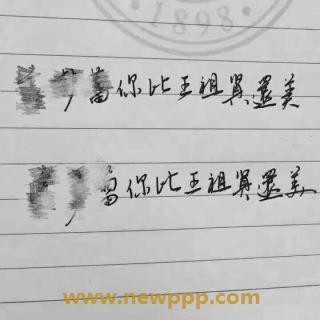 1898
你比王祖異還美
你比王祖異還美
www.newppp.com